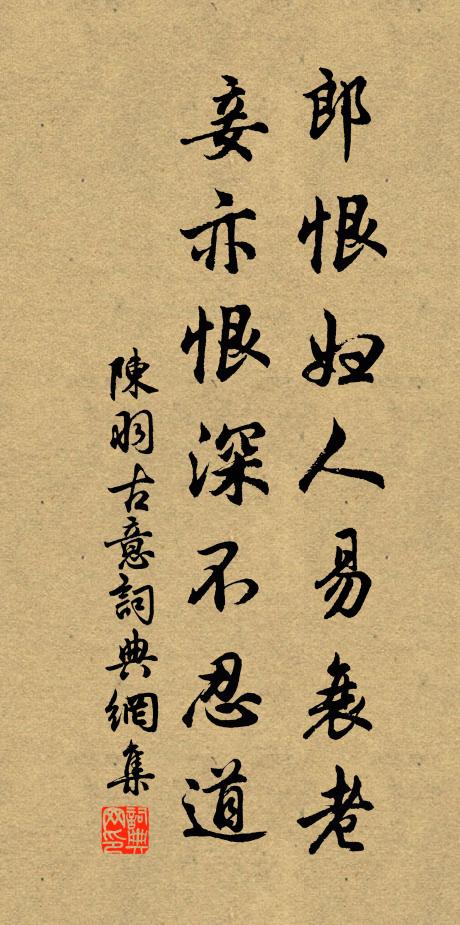 郎恨婦人易衰老
妾亦恨深不忍道
陳羽古意詞典網集
詞典网印